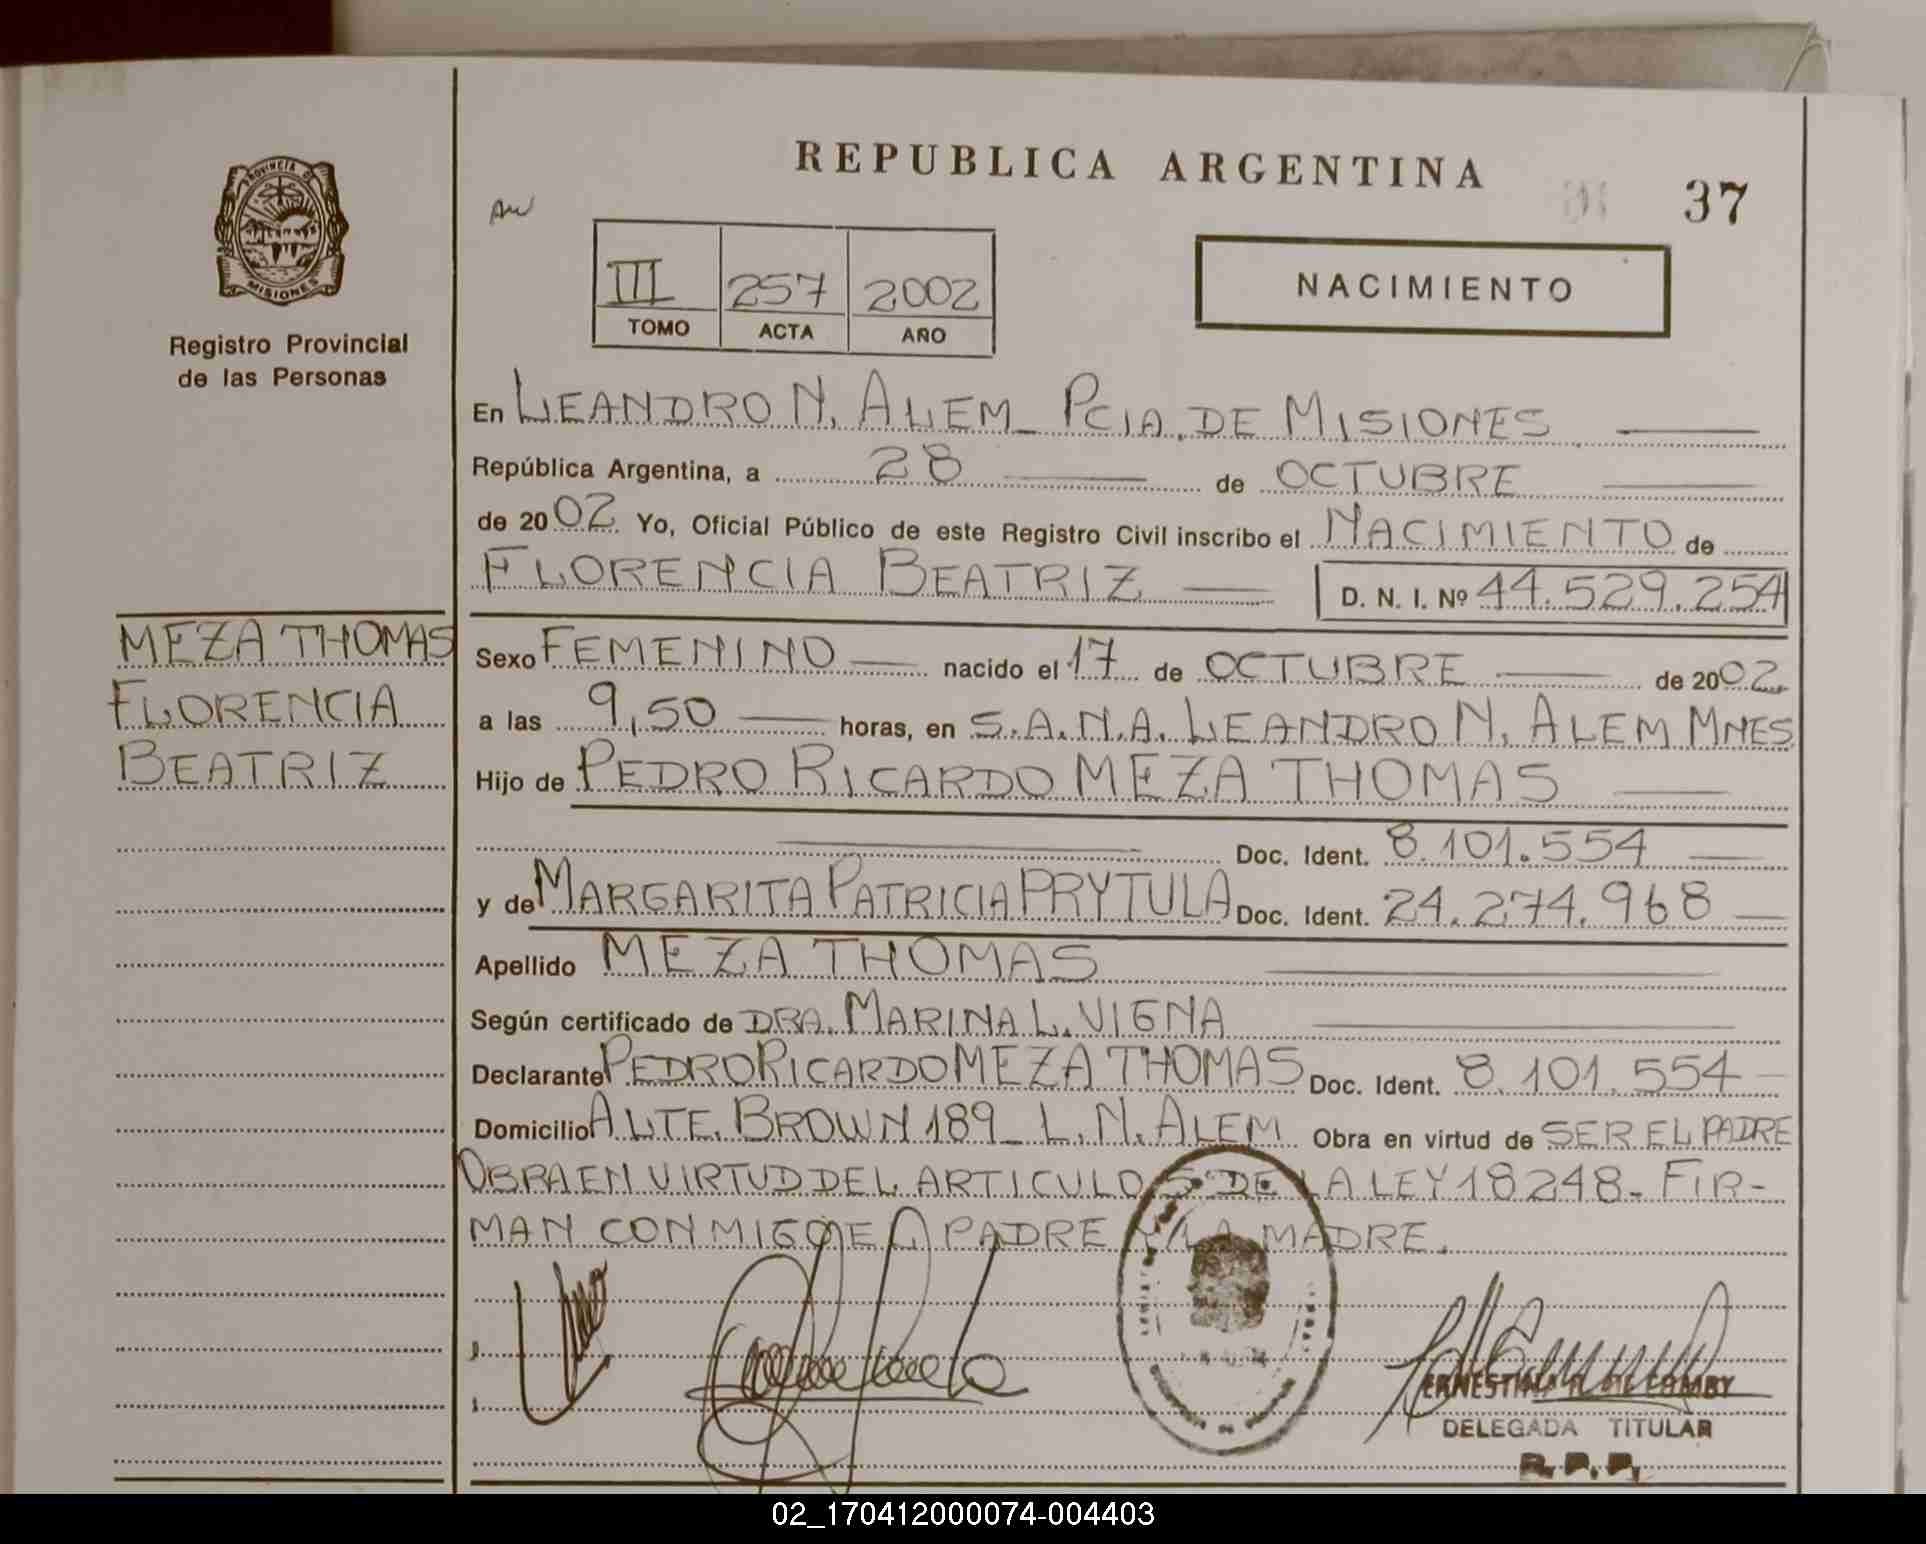 PROVINCIA DE
MISIONES
Registro Provincial
de las Personas
MEZA THOMAS
FLORENCIA
BEATRIZ
REPUBLICA ARGENTINA
37
III 257 2002
TOMO ACTA AÑO
NACIMIENTO
En LEANDRO N. ALEM_ PCIA. DE MISIONES
República Argentina, a 28 de OCTUBRE
de 2002 Yo, Oficial Público de este Registro Civil inscribo el NACIMIENTO de
FLORENCIA BEATRIZ D. N. I. Nº 44.529.254
Sexo FEMENINO nacido el 17 de OCTUBRE de 2002
a las 9,50 horas, en S.A.N.A. LEANDRO N. ALEM MNES
Hijo de PEDRO RICARDO MEZA THOMAS
Doc. Ident. 8.101.554
y de MARGARITA PATRICIA PRYTULA Doc. Ident. 24.274.968
Apellido MEZA THOMAS
Según certificado de DRA. MARINA L. VIGNA
Declarante PEDRO RICARDO MEZA THOMAS Doc. Ident. 8.101.554
Domicilio ALTE. BROWN 189_ L. N. ALEM Obra en virtud de SER EL PADRE
OBRA EN VIRTUD DEL ARTICULO 5º DE LA LEY 18248_ FIR-
MAN CONMIGO EL PADRE Y LA MADRE.
DELEGADA TITULAR
R. P. P.
02_170412000074-004403